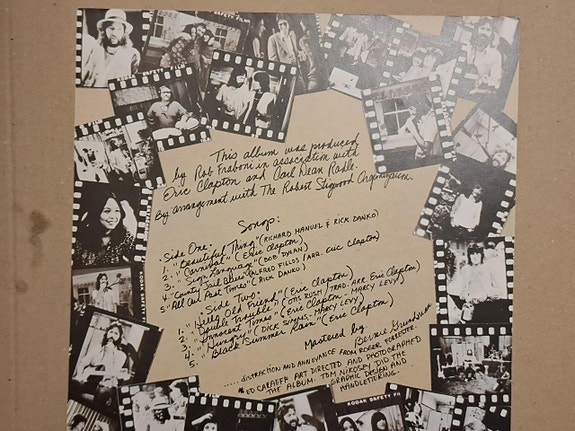 This album was produced
by Rob Fraboni in association with
Eric Clapton and Carl Dean Radle.
By arrangement with The Robert Stigwood Organization.
Songs:
Side One:
1. "Beautiful Thing" (RICHARD MANUEL & RICK DANKO)
2. "Carnival" (Eric Clapton)
3. "Sign Language" (BOB DYLAN)
4. "County Jail Blues" (ALFRED FIELDS / ARR. Eric Clapton)
5. "All Our Past Times" (RICK DANKO)
Side Two:
1. "Hello Old Friend" (Eric Clapton)
2. "Double Trouble" (OTIS RUSH / TRAD. ARR. Eric Clapton)
3. "Innocent Times" (Eric Clapton - MARCY LEVY)
4. "Hungry" (DICK SIMMS - MARCY LEVY)
5. "Black Summer Rain" (Eric Clapton)
Mastered by
Bernie Grundman
..... DISTRACTION AND ANNOYANCE FROM ROGER FORRESTER.
ED CARAEFF ART DIRECTED AND PHOTOGRAPHED
THE ALBUM. TOM NIKOSEY DID THE
GRAPHIC DESIGN AND
HANDLETTERING.
SAFETY FILM
KODAK SAFETY
KODAK SAFETY FIL